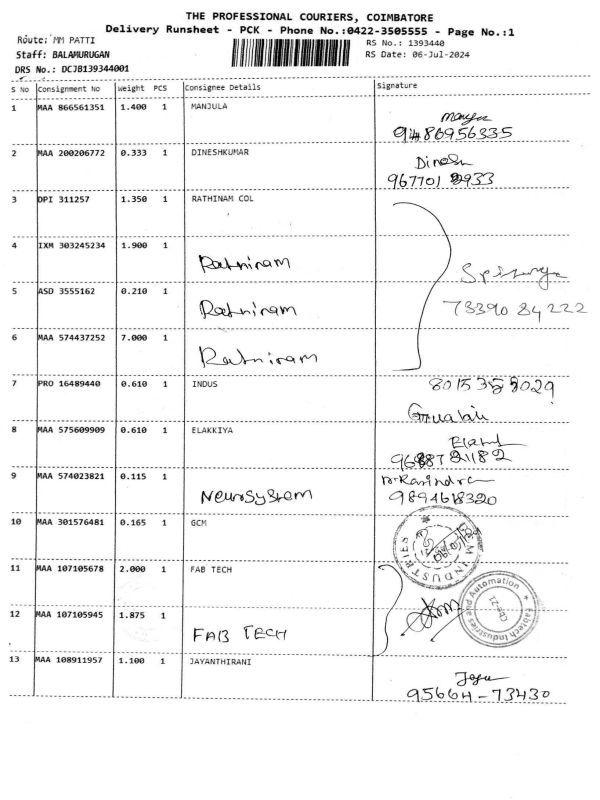 THE PROFESSIONAL COURIERS, COIMBATORE
Delivery Runsheet - PCK - Phone No.:0422-3505555 - Page No.:1
Route: MM PATTI
RS No.: 1393440
Staff: BALAMURUGAN
RS Date: 06-Jul-2024
DRS No.: DCJB139344001
S No Consignment No Weight PCS Consignee Details Signature
1 MAA 866561351 1.400 1 MANJULA
9486956335
2 MAA 200206772 0.333 1 DINESHKUMAR Dinesh
3 DPI 311257 1.350 1 RATHINAM COL
4 IXM 303245234 1.900 1 Ratniram
5 ASD 3555162 0.210 1 Ratniram
73390 84222
6 MAA 574437252 7.000 1 Ratniram
7 PRO 16489440 0.610 1 INDUS
8 MAA 575609909 0.610 1 ELAKKIYA
9 MAA 574023821 0.115 1 NeuroSystem
9894618320
10 MAA 301576481 0.165 1 GCM
GCM INDUSTRIES
11 MAA 107105678 2.000 1 FAB TECH
Fabtech Industries and Automation
CBE-21
12 MAA 107105945 1.875 1 FAB TECH
13 MAA 108911957 1.100 1 JAYANTHIRANI
95664-73430